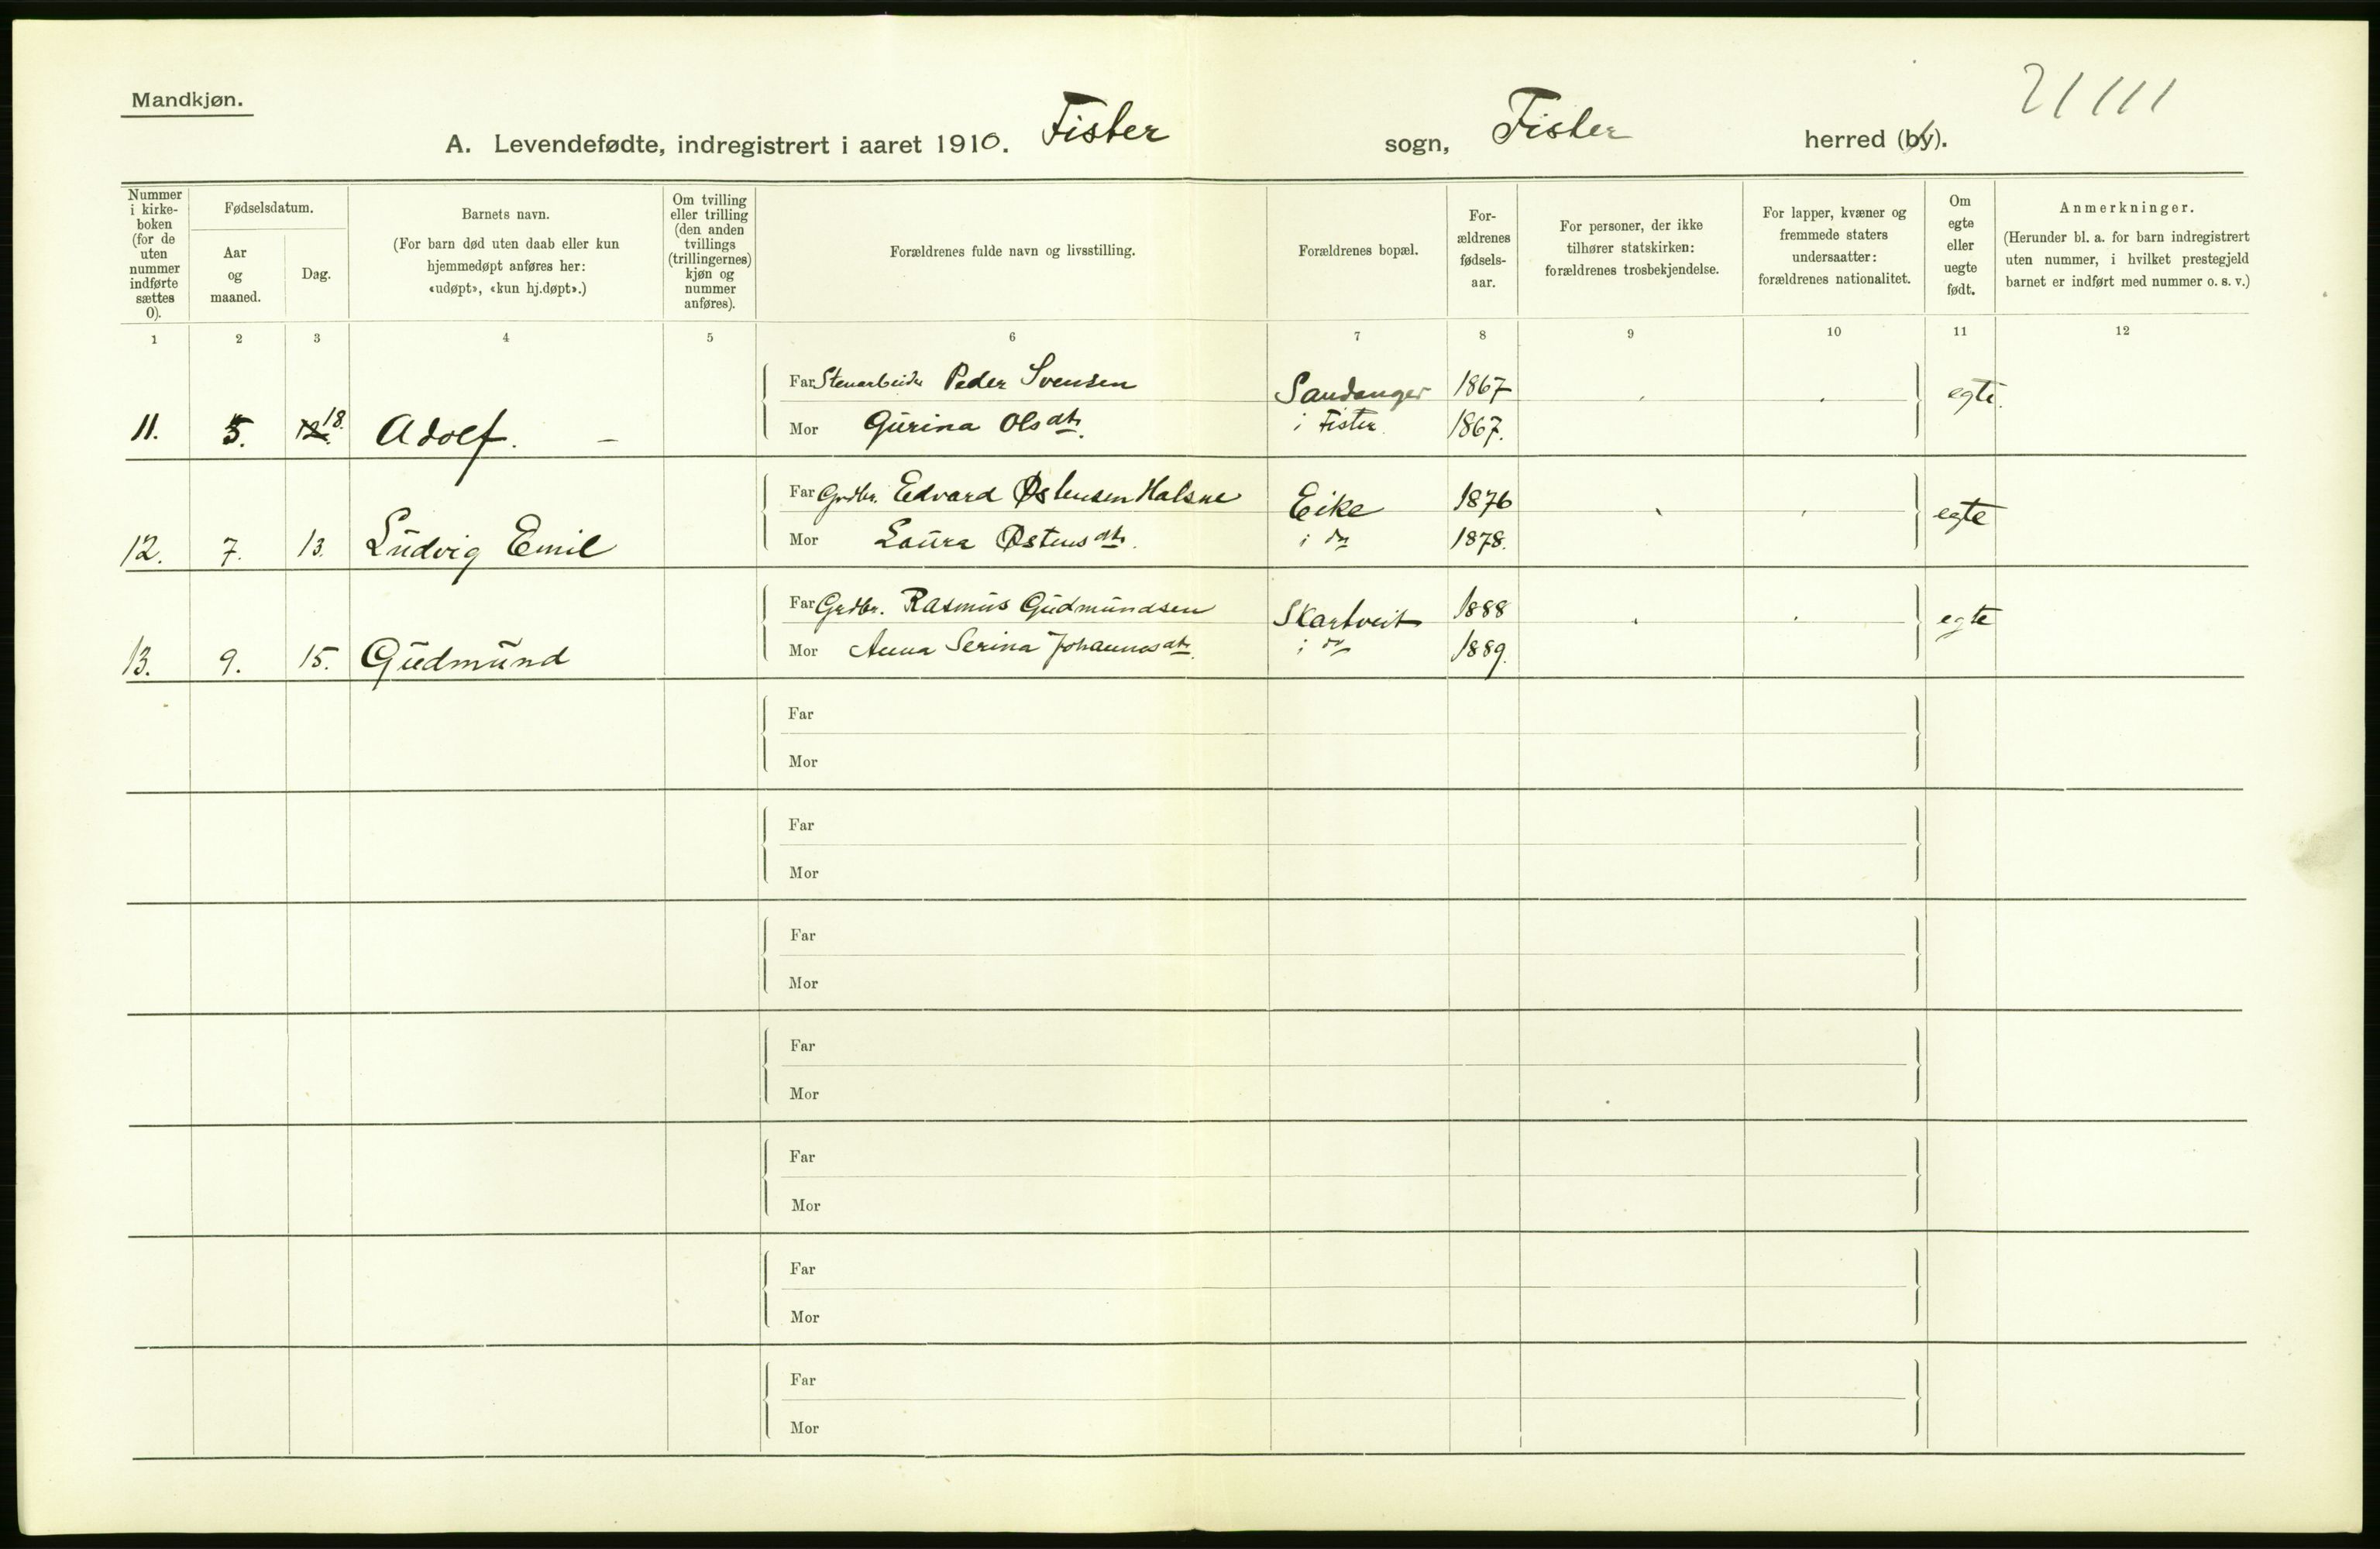 Mandkjøn.
21111
A. Levendefødte, indregistrert i aaret 1910. Fister sogn, Fister herred (by).
Nummer i kirke- boken (for de uten nummer indførte sættes 0).
Fødselsdatum.
Aar og maaned.
Dag.
Barnets navn.
(For barn død uten daab eller kun hjemmedøpt anføres her: «udøpt», «kun hj.døpt».)
Om tvilling eller trilling (den anden tvillings (trillingernes) kjøn og nummer anføres).
Forældrenes fulde navn og livsstilling.
Forældrenes bopæl.
For- ældrenes fødsels- aar.
For personer, der ikke tilhører statskirken: forældrenes trosbekjendelse.
For lapper, kvæner og fremmede staters undersaatter: forældrenes nationalitet.
Om egte eller uegte født.
Anmerkninger.
(Herunder bl. a. for barn indregistrert uten nummer, i hvilket prestegjeld barnet er indført med nummer o. s. v.)
1 2 3 4 5 6 7 8 9 10 11 12
Far Stenarbeider Peder Svensen Sandanger 1867 egte.
11. 5. 18. Adolf. – Mor Gurina Olsdtr. i Fister 1867.
Far Grdbr. Edvard Østensen Halsne Eike 1876 egte
12. 7. 13. Ludvig Emil Mor Laura Østensdtr. i do 1878.
Far Grdbr. Rasmus Gudmundsen Skartveit 1888 egte
13. 9. 15. Gudmund Mor Anna Serina Johannesdtr. i do 1889.
Far
Mor
Far
Mor
Far
Mor
Far
Mor
Far
Mor
Far
Mor
Far
Mor